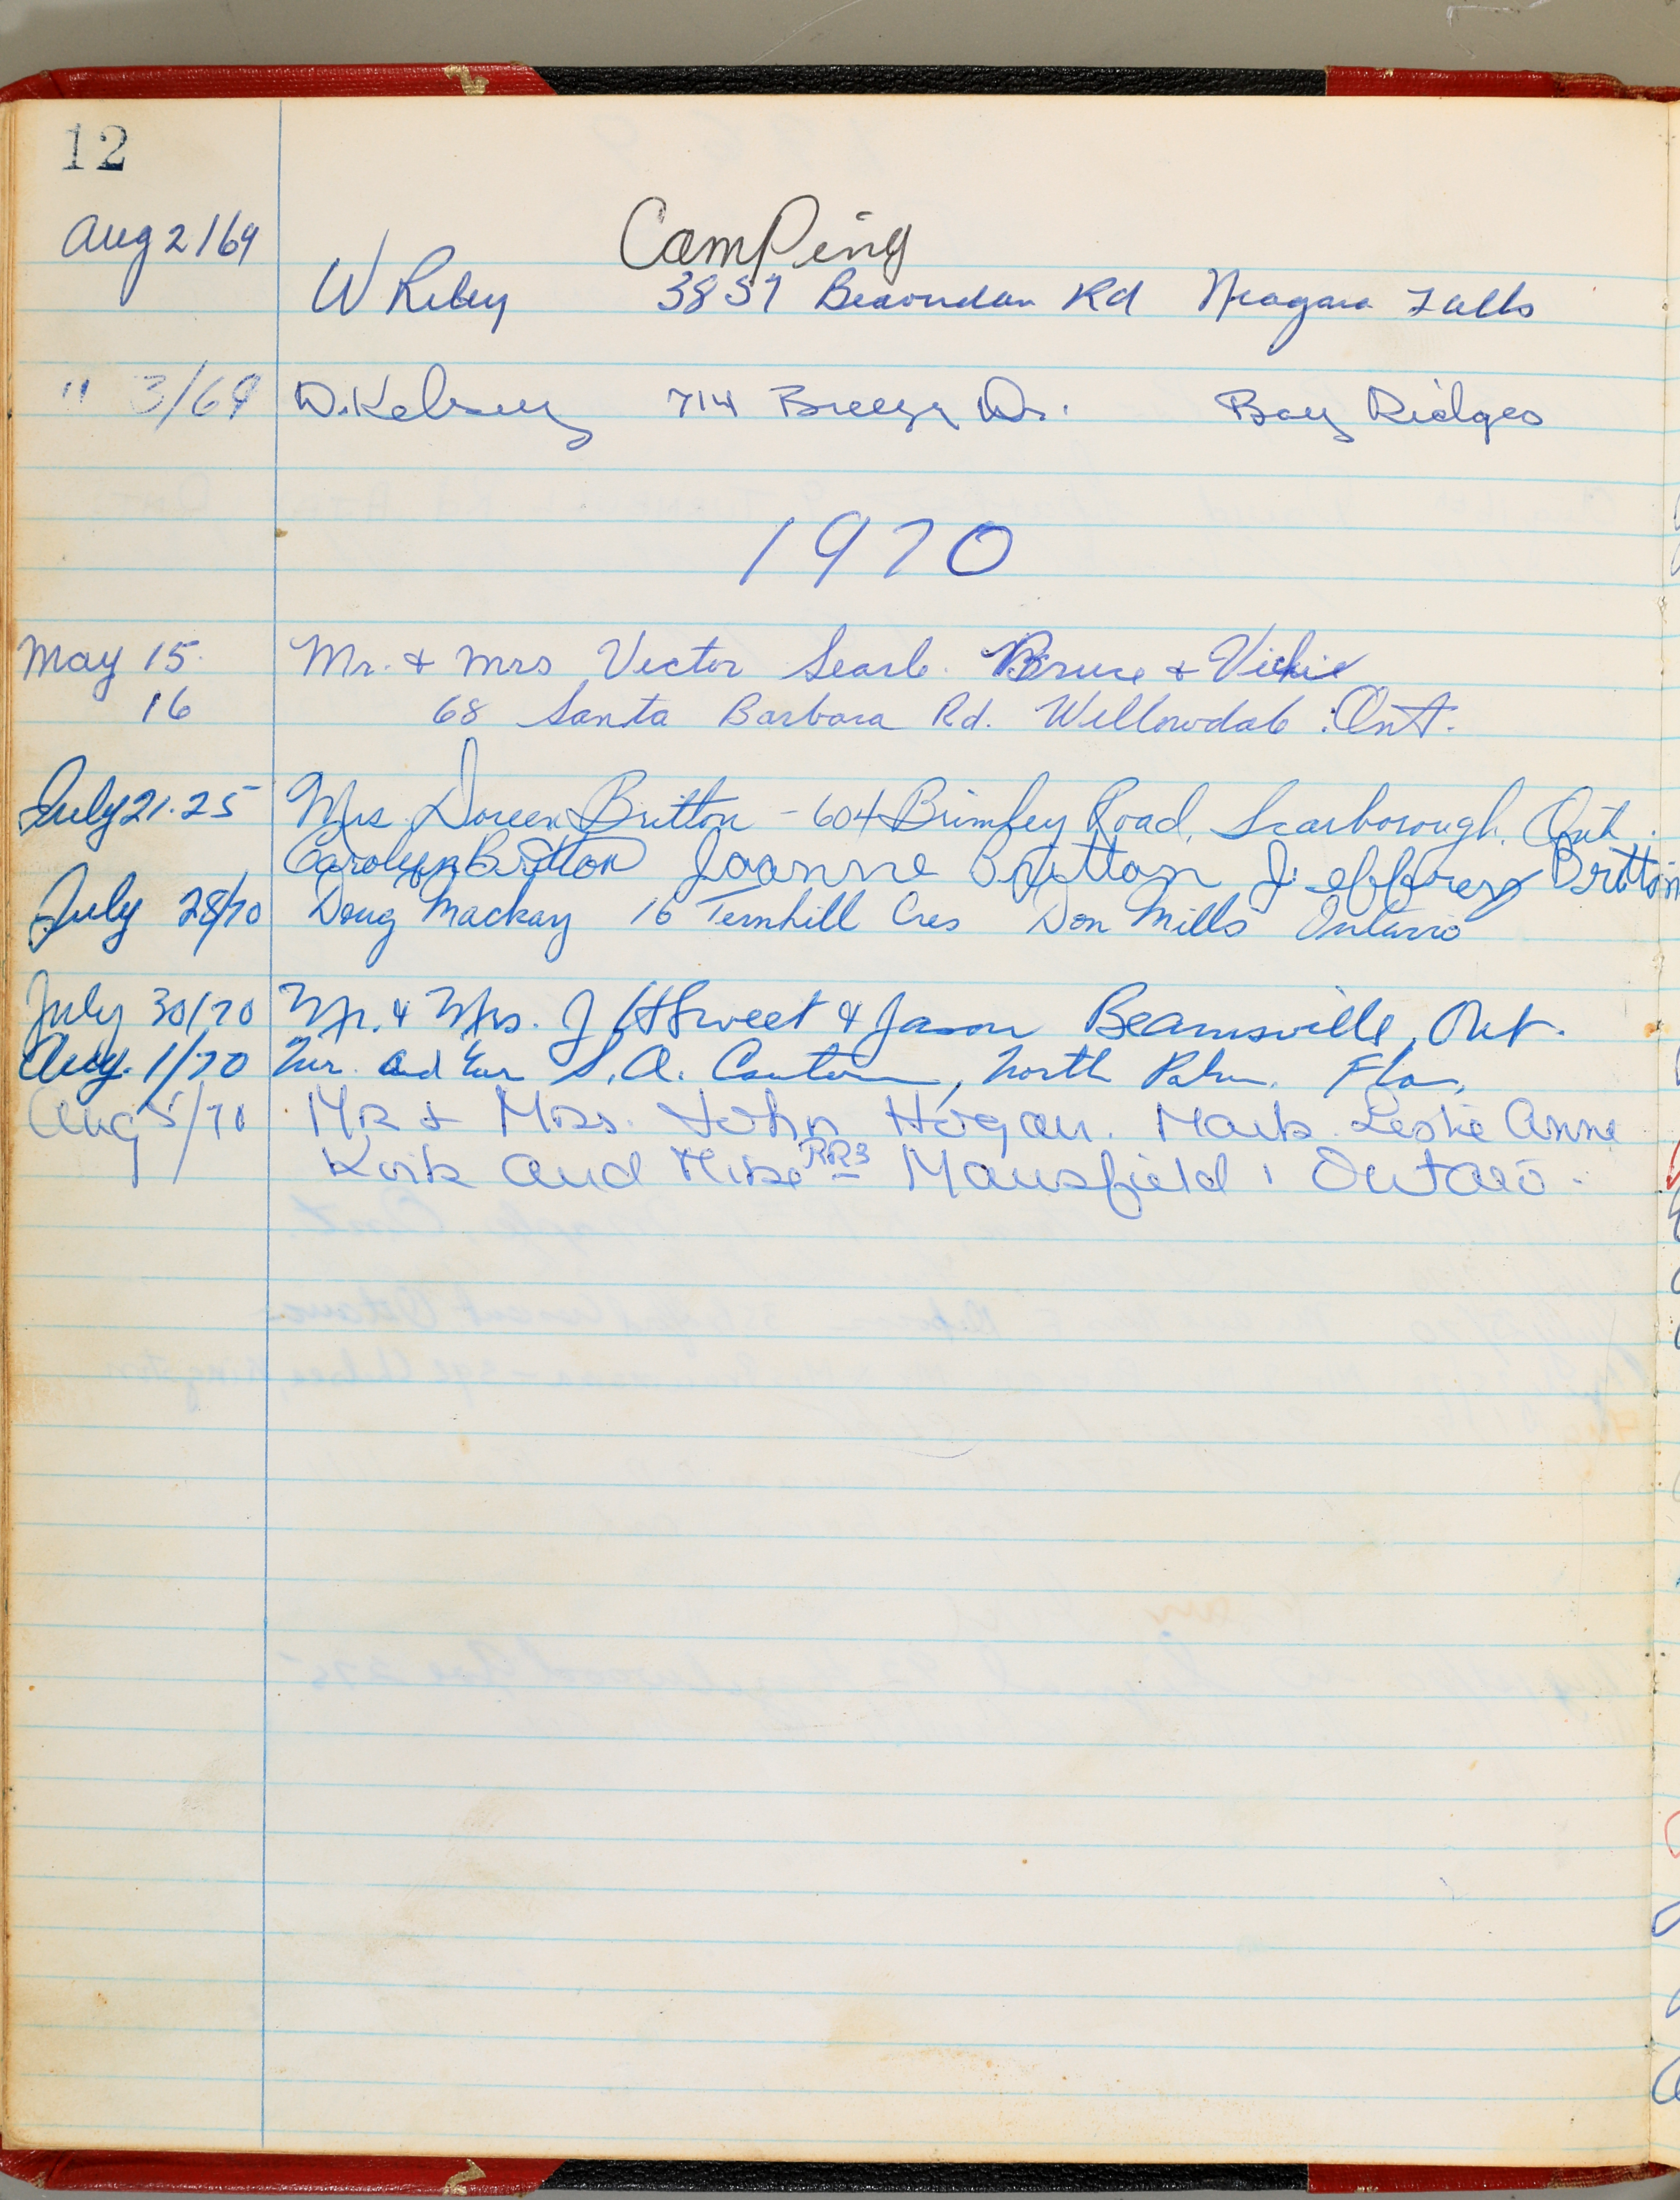 12
Camping
Aug 2/69 W Riley 3857 Rd Niagara Falls
" 3/69 D. Kelsey 714 Breezy Dr. Bay Ridges
1970
May 15. Mr. & Mrs Victor Searle. Bruce & Vickie
16 68 Santa Barbara Rd. Willowdale Ont.
July 21-25 Mrs. Doreen Britton - 604 Brimley Road, Scarborough, Ont.
Carolyn Britton Joanne Britton Jeffrey Britton
July 28/70 Doug Mackay 16 Ternhill Cres Don Mills Ontario
July 30/70 Mr. & Mrs. J H Sweet & Jason Beamsville, Ont.
Aug. 1/70 Mr. and Mrs S. A. North Palm, Fla.
Aug 5/70 Mr & Mrs. John Hogan. Mark Leslie Anne
Kirk and Mike RR3 Mansfield, Ontario.